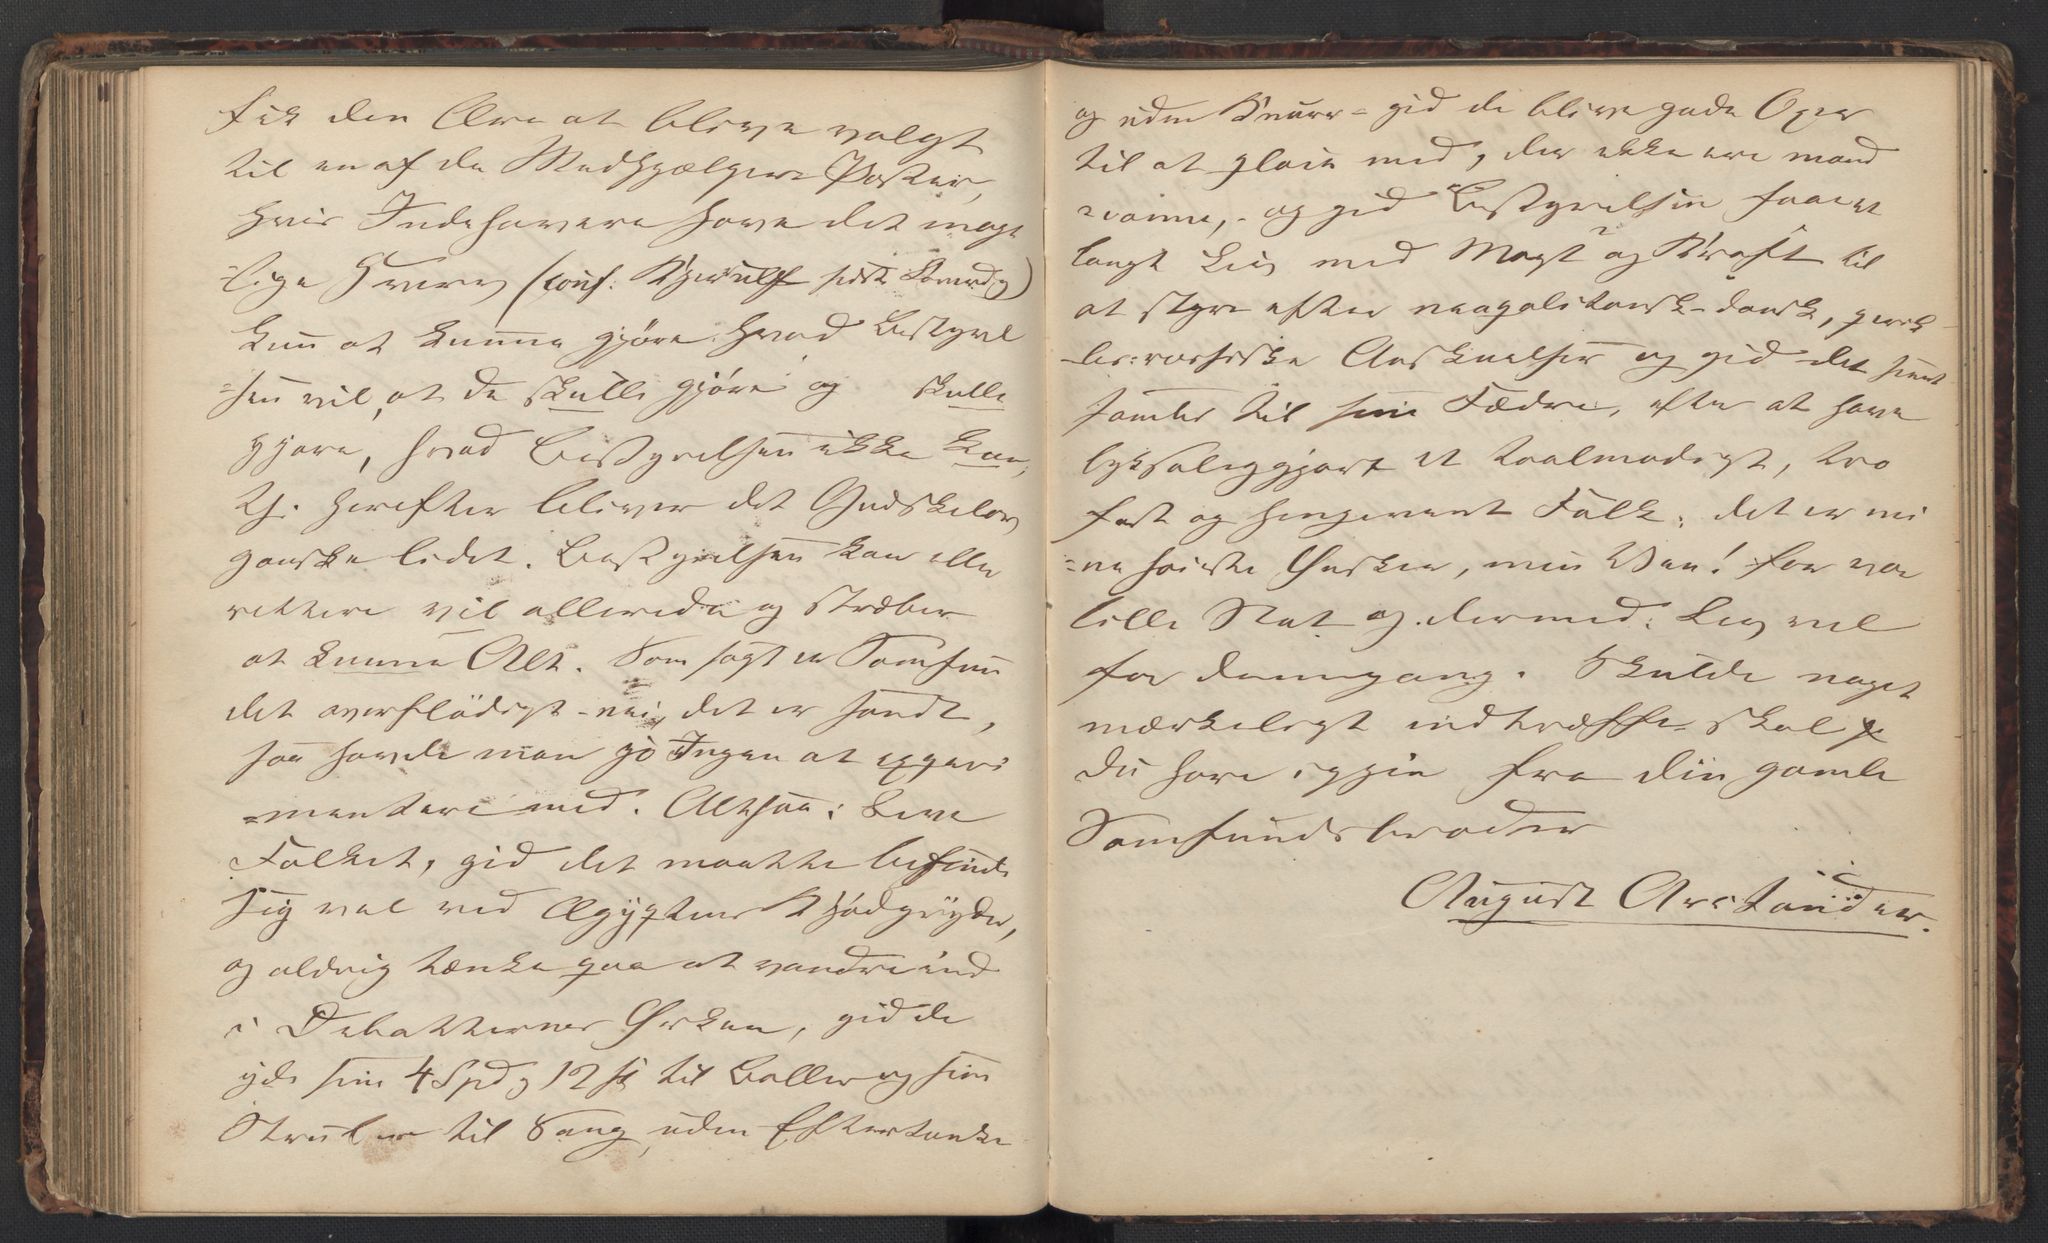 fik den Ære at blive valgt
til en af de Medhjælpere Poster,
hvis Indehavere have det mage
=lige Hverv (conf. Kjerulfs sidste
kun at kunne gjøre hvad Bestyrel
=sen vil, at de skulle gjøre og skulle
gjøre, hvad Bestyrelsen ikke kan,
th. herefter bliver det Gudskelov
ganske lidet. Bestyrelsen kan eller
rettere vil allerede og stræber
at kunne Alt. Som sagt er Samfun
det overflødigt - nei, det er sandt,
saa havde man jo Ingen at experi
=mentere med. Altsaa: Leve
Folket, gid det maatte befinde
sig vel ved Ægyptens Kjødgryder,
og aldrig tænke paa at vandre ind
i Debatternes Ørken, gid de
yde sine 4 Spd, 12 ß til Baller og sine
Struber til Sang, uden Eftertanke
og uden Knurr - gid de blive gode Oxer
til at pløie med, der ikke ere mand
vonne, - og gid Bestyrelsen faae et
langt Liv med Magt og Kraft til
at styre efter neapolitansk-dansk,
russiske Anskuelser og gid det sient
samles til sine Fædre, efter at have
lyksaliggjort et taalmodigt, tro
fast og hengivent Folk; det er mi
=ne høieste Ønsker, min Ven! for vor
lille Stat og dermed: Lev vel
for dennegang. Skulde noget
mærkeligt indtræffe skal
du høre igjen fra din gamle
Samfundsbroder
August Arctander.